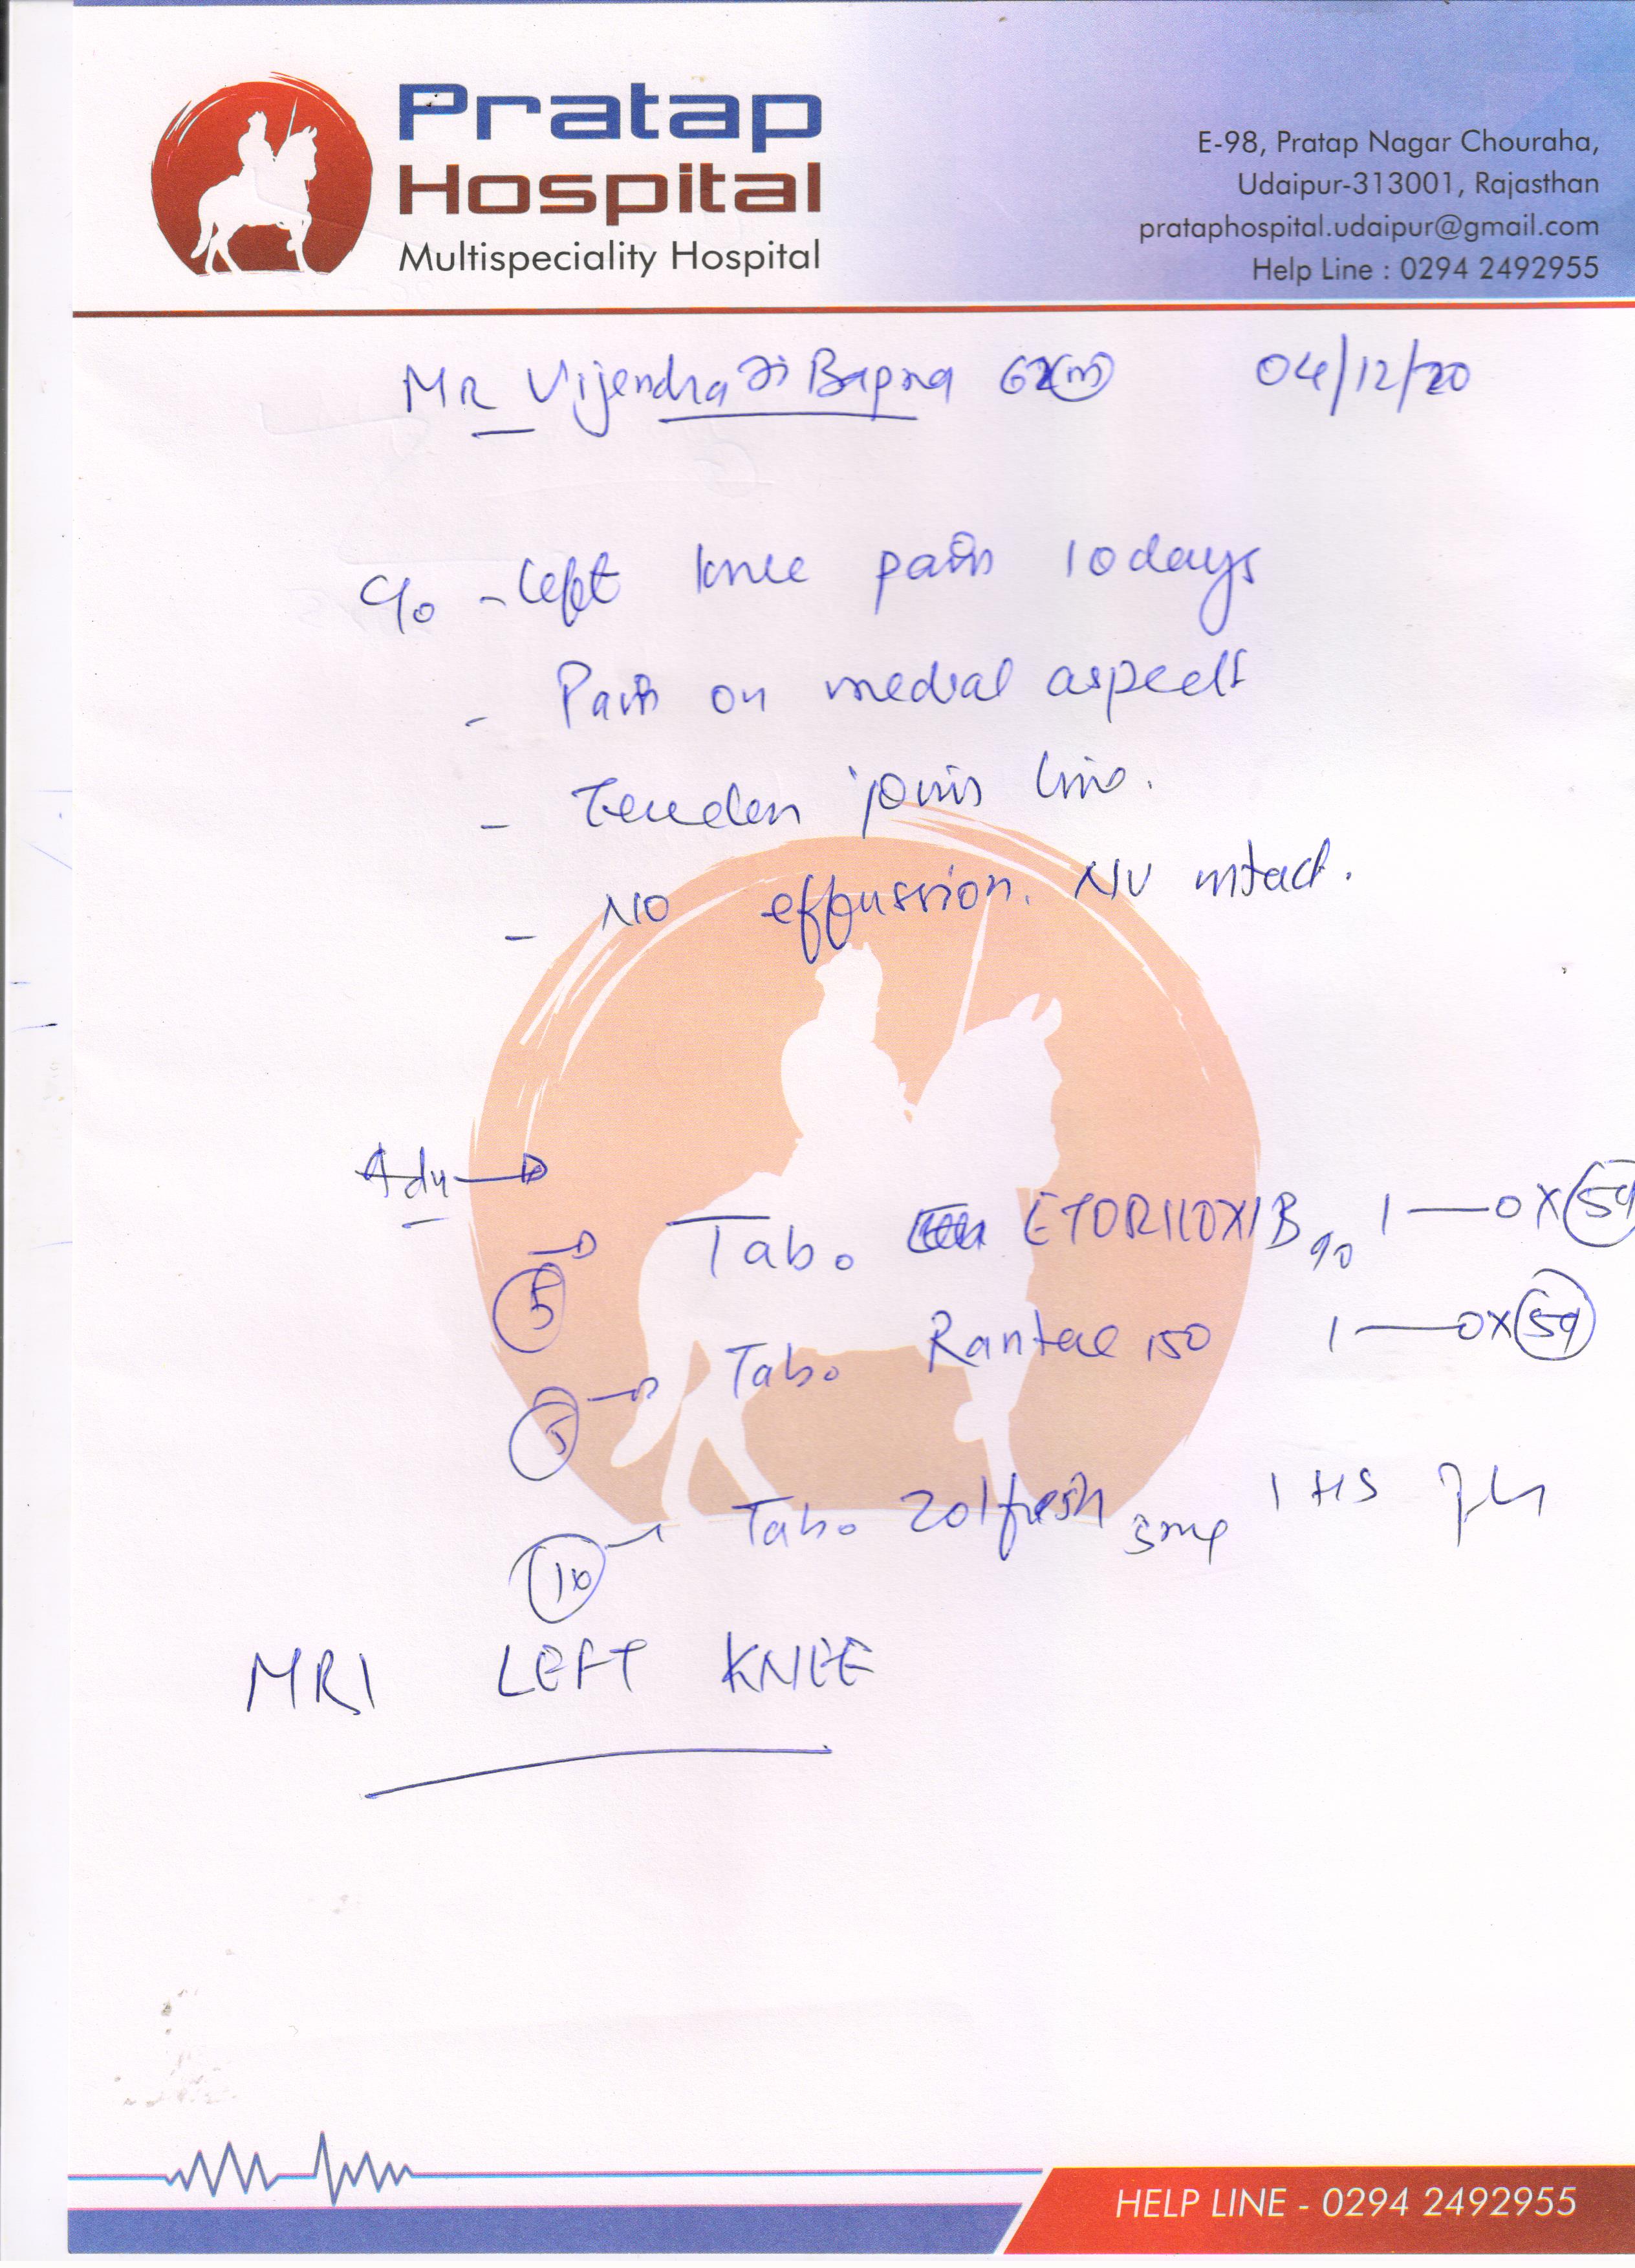 Pratap
Hospital
Multispeciality Hospital
E-98, Pratap Nagar Chouraha,
Udaipur-313001, Rajasthan
prataphospital.udaipur@gmail.com
Help Line : 0294 2492955
MR Vijendra Bapna 04/12/20
c/o - left knee pain 10 days
- Pain on medial aspect
- Tender joint line.
- NO effussion. NV intact.
Adv
Tab. ETORICOXIB 90 1—0 x 5d
5
Tab. Rantac 150 1—0 x 5d
5
Tab. Zolfresh 5mg 1 HS
10
MRI LEFT KNEE
HELP LINE - 0294 2492955